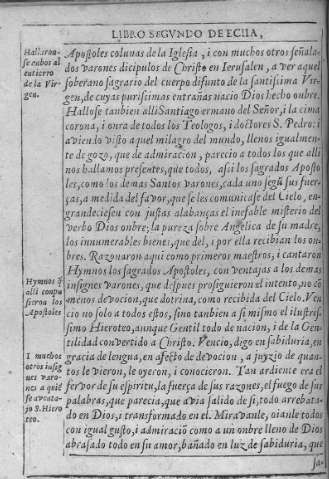 LIBRO SEGVNDO DE ECIIA,
Hallaron-
se anbos al
entierro
de la Vir-
gen.
Apostoles colunas de la Iglesia, i con muchos otros señala-
dos varones dicipulos de Christo en Ierusalen, a ver aquel
soberano sagrario del cuerpo difunto de la santissima Vir-
gen, de cuyas purissimas entrañas nacio Dios hecho onbre.
Hallose tanbien alli Santiago ermano del Señor, i la cima
corona, i onra de todos los Teologos, i doctores S. Pedro: i
aviendo visto aquel milagro del mundo, llenos igualmen-
te de gozo, que de admiracion, parecio a todos los que alli
nos hallamos presentes, que todos, assi los sagrados Aposto
les, como los demas Santos varones, cada uno segũ sus fuer-
ças, a medida del favor, que se les comunicasse del Cielo, en-
grandeciesen con justas alabanças el inefable misterio del
verbo Dios onbre; la pureza sobre Angelica de su madre,
los innumerables bienes, que del, i por ella recibian los on-
bres. Razonaron aqui como primeros maestros, i cantaron
Hymnos los sagrados Apostoles, con ventajas a los demas
insignes varones, que despues prosiguieron el intento, no cõ
menos devocion, que dotrina, como recibida del Cielo. Ven
cio no solo a todos estos, sino tanbien a si mismo el ilustris-
simo Hieroteo, aunque Gentil todo de nacion, i de la Gen-
tilidad convertido a Christo. Vencio, digo en sabiduria, en
gracia de lengua, en afecto de devocion, a juyzio de quan-
tos le vieron, le oyeron, i conocieron. Tan ardiente era el
fervor de su espiritu, la fuerça de sus razones, el fuego de sus
palabras, que parecia, que avia salido de si, todo arrebata-
do en Dios, i transformado en el. Miravanle, oianle todos
con igual gusto, i admiraciõ como a un onbre lleno de Dios
abrasado todo en su amor, bañado en luz de sabiduria, que
Hymnos q̃
alli conpu
sieron los
Apostoles
I muchos
otros insig
nes varo-
nes a quiẽ
se aventa-
jo S. Hiero
teo.